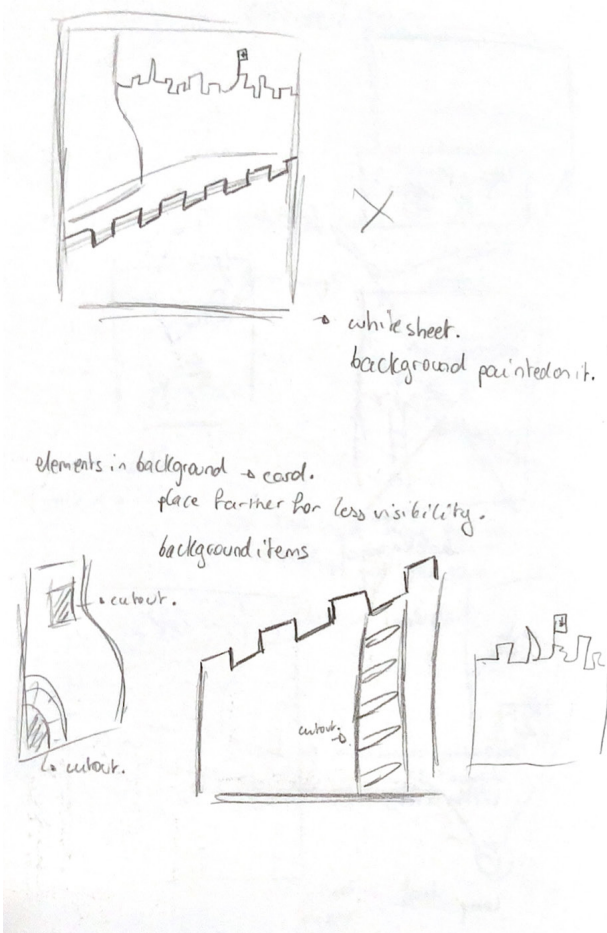 whitesheet.
background painted on it.
elements in background → card.
place farther for less visibility.
background items
cutout.
cutout.
cutout.